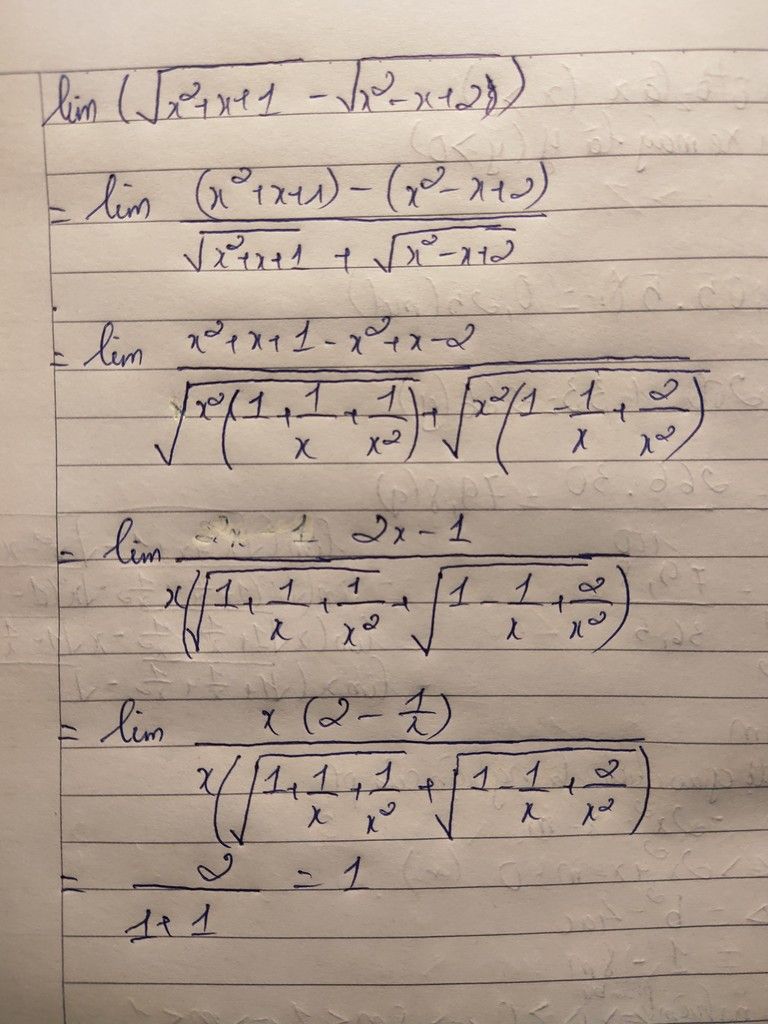 lim (√(x²+x+1) - √(x²-x+2))
= lim ((x²+x+1) - (x²-x+2)) / (√(x²+x+1) + √(x²-x+2))
= lim (x²+x+1-x²+x-2) / (√(x²(1+1/x+1/x²)) + √(x²(1-1/x+2/x²)))
= lim (2x-1) / (x(√(1+1/x+1/x²) + √(1-1/x+2/x²)))
= lim (x(2-1/x)) / (x(√(1+1/x+1/x²) + √(1-1/x+2/x²)))
= 2/(1+1) = 1